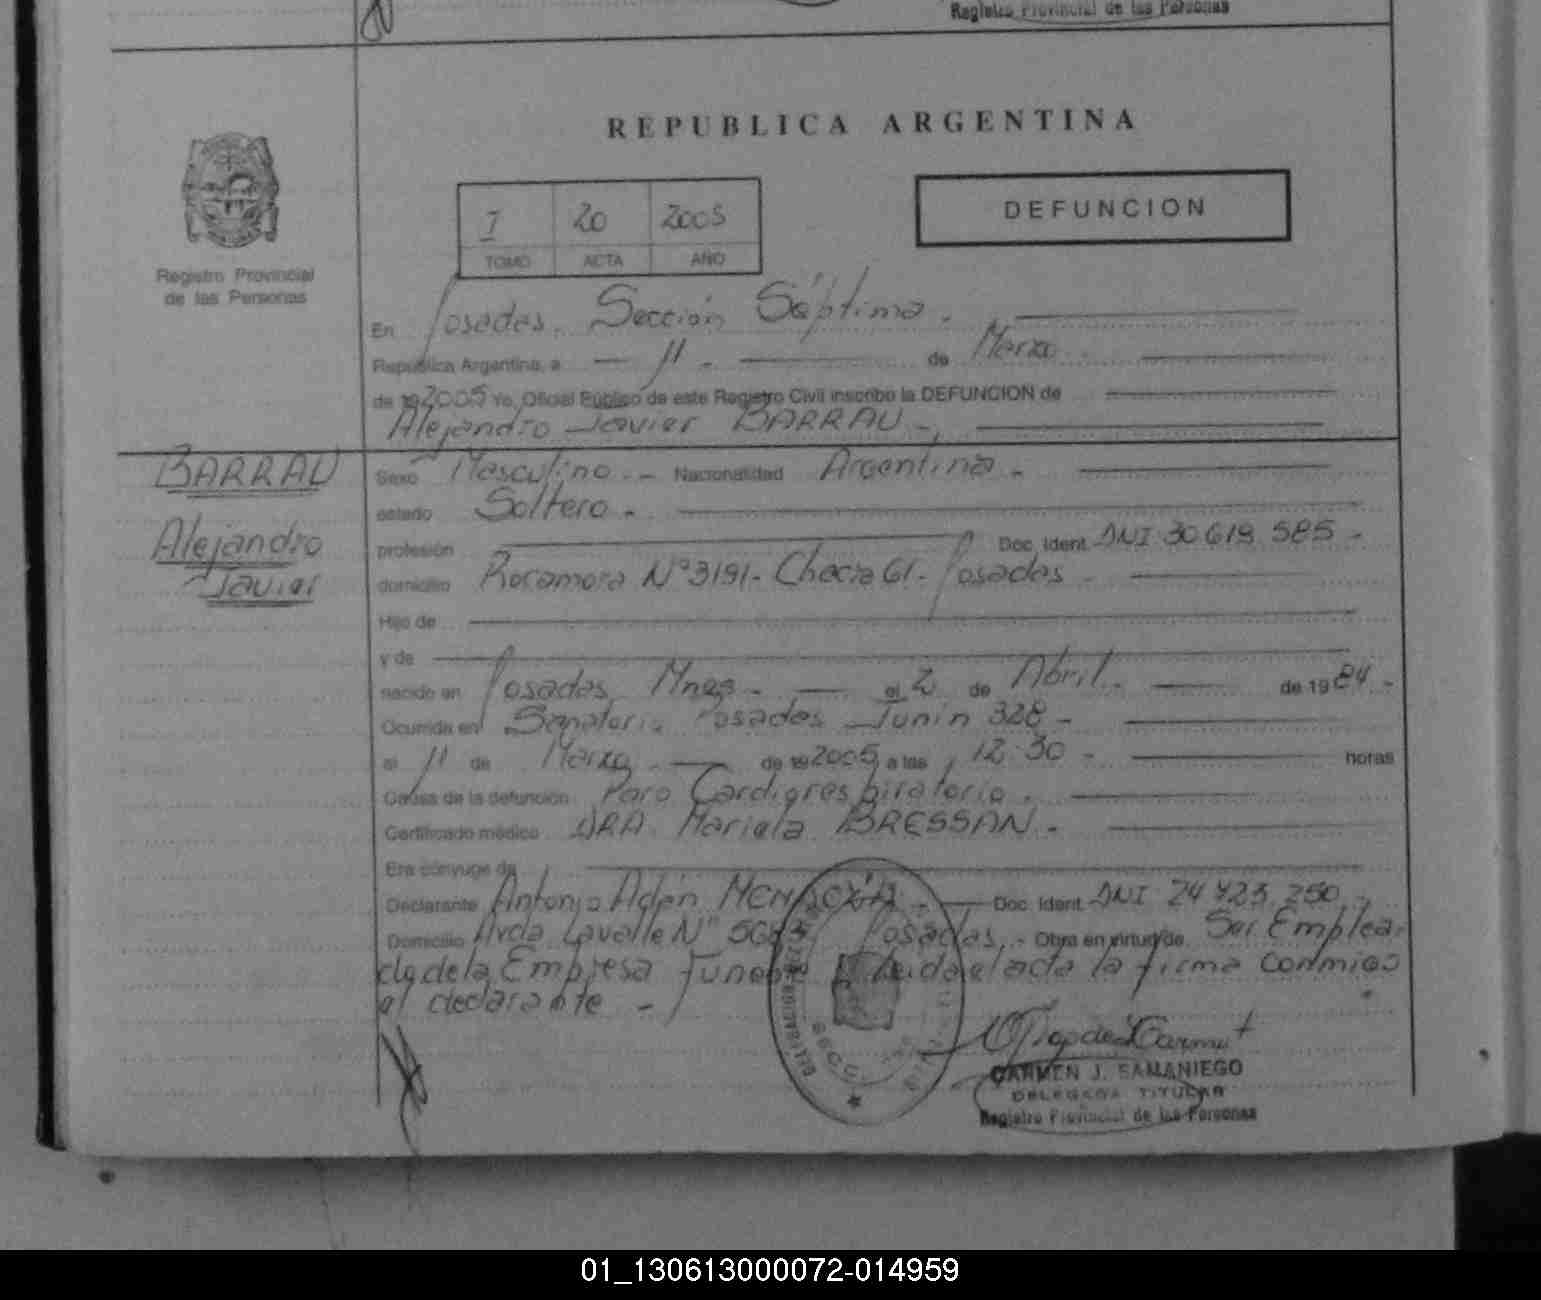 Registro Provincial de las Personas
REPUBLICA ARGENTINA
I 20 2005
TOMO ACTA AÑO
DEFUNCION
Registro Provincial
de las Personas
En Posadas. Sección Séptima.
República Argentina, a 11 de Marzo
de 19 2005 Yo, Oficial Público de este Registro Civil inscribo la DEFUNCION de
Alejandro Javier BARRAU
BARRAU
Alejandro
Javier
Sexo Masculino. Nacionalidad Argentina.
estado Soltero.
profesión Doc. Ident. DNI 30 619 585
domicilio Rocamora Nº 3191. Chacra 61. Posadas
Hijo de
y de
nacido en Posadas Mnes. el 2 de Abril de 19 84
Ocurrida en Sanatorio Posadas Junín 328
el 11 de Marzo de 19 2005 a las 12:30 horas
Causa de la defunción Paro Cardiorespiratorio.
Certificado médico DRA. Mariela BRESSAN.
Era cónyuge de
Declarante Antonio Adán Doc. Ident. DNI 24 723 250
Domicilio Avda Lavalle Nº Posadas. Obra en virtud de Ser Emplea-
do de la Empresa Leida el acta la firma conmigo
el declarante
CARMEN J. SAMANIEGO
DELEGADA TITULAR
Registro Provincial de las Personas
01_130613000072-014959